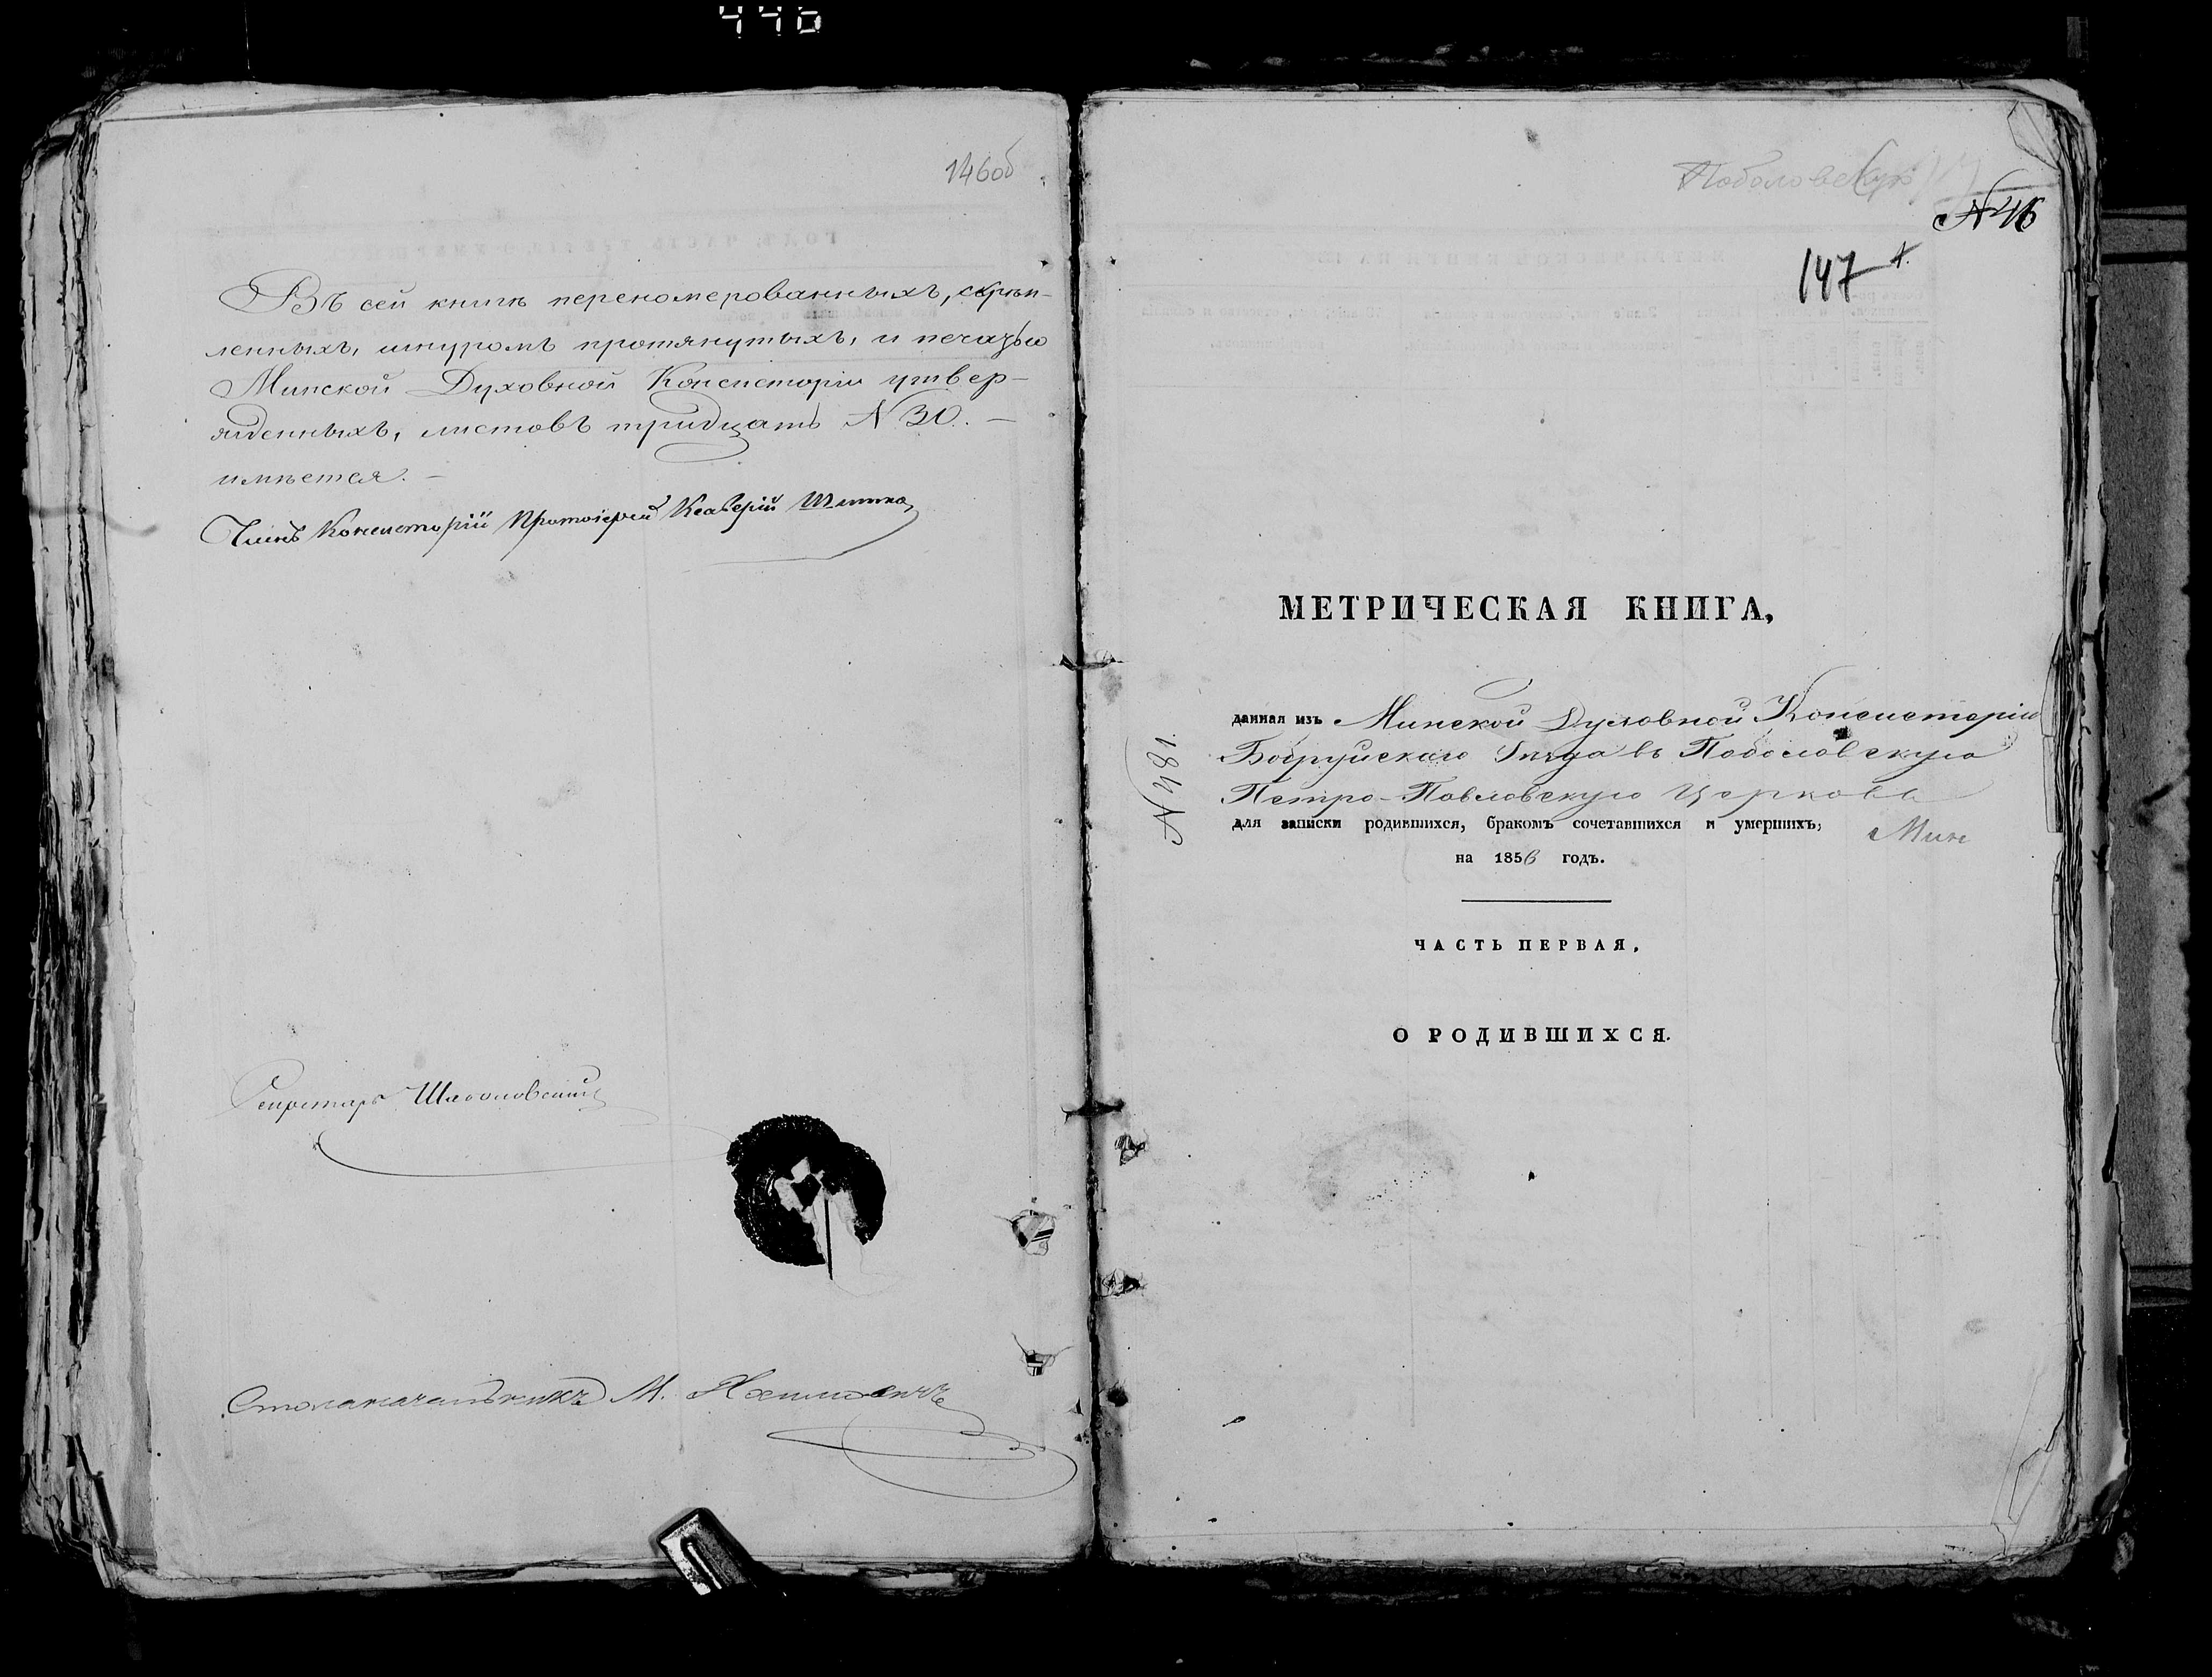 440
146об
Въ сей книгѣ перенумерованныхъ, скрѣп-
ленныхъ, шнуромъ протянутыхъ, и печатью
Минской Духовной Консисторіи утвер-
жденныхъ, листовъ тридцать N 30. —
имѣется. —
Членъ Консисторіи Протоіерей Ксаверій
Секретарь
Столоначальникъ М.
Поболовскую
N 46
147
МЕТРИЧЕСКАЯ КНИГА,
данная изъ Минской Духовной Консисторіи
Бобруйскаго Уѣзда въ Поболовскую
Петро-Павловскую Церковь
для записки родившихся, бракомъ сочетавшихся и умершихъ;
Мин
на 1856 годъ.
N 481
ЧАСТЬ ПЕРВАЯ,
О РОДИВШИХСЯ.